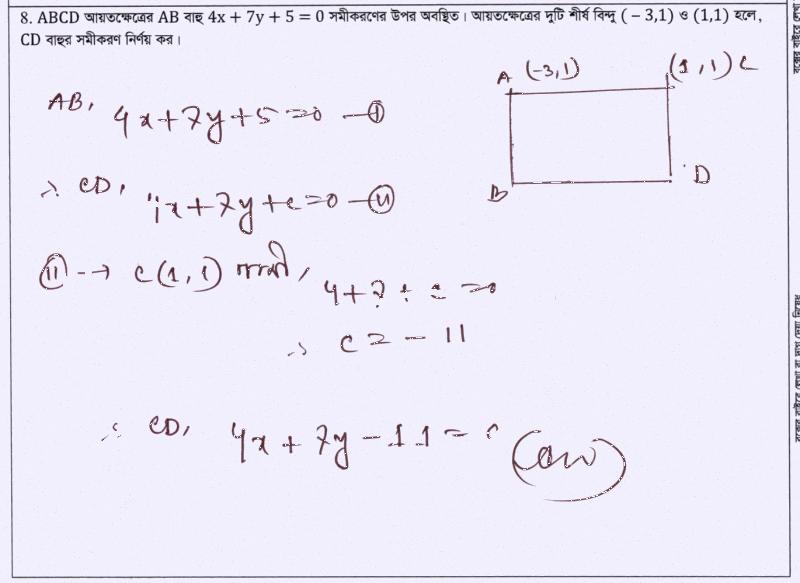 8. ABCD আয়তক্ষেত্রের AB বাহু 4x + 7y + 5 = 0 সমীকরণের উপর অবস্থিত। আয়তক্ষেত্রের দুটি শীর্ষ বিন্দু ( − 3,1) ও (1,1) হলে,
CD বাহুর সমীকরণ নির্ণয় কর।
A (-3,1) (1,1) C
AB, 4x+7y+5=0 —(I)
B D
∴ CD, 4x+7y+c=0 —(II)
(II) --→ C(1,1) গামী,
4+7+c=0
∴ c = -11
∴ CD, 4x+7y-11=0 (ans)